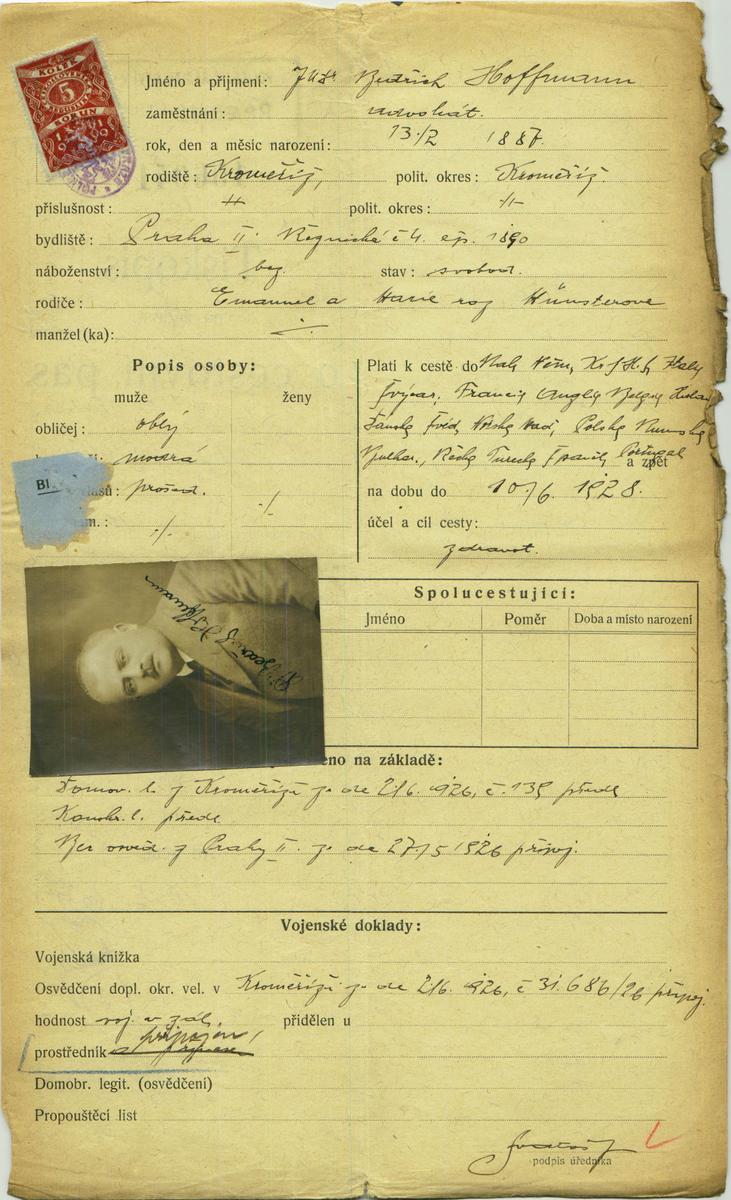 KOLEK
ČESKOSLOVENSKÁ REPUBLIKA
5
KORUN
1919
Jméno a příjmení: JUDr Bedřich Hoffmann
zaměstnání: advokát.
rok, den a měsíc narození: 13./2 1887.
rodiště: Kroměříž, polit. okres: Kroměříž.
příslušnost: -//- polit. okres: -//-
bydliště: Praha II. Řeznická č 4. čp. 1890
náboženství: bez stav: svobod.
rodiče: Emanuel a Marie roz Münsterova
manžel(ka): ./.
Popis osoby:
muže ženy
obličej: oblý
modrá
vlasů: prošed.
BI
-/- -/-
Platí k cestě do Italy
Švýcar, Francie Anglie Belgie
Dánska Švéd, Norska Polska Rumunska
Bulhar., Turecka Portugal a zpět
na dobu do 10/6. 1928.
účel a cíl cesty:
zdravot.
Spolucestující:
Jméno Poměr Doba a místo narození
eno na základě:
Domov. l. z Kroměříže ze dne 2/6. 1926, č. 139 předl
předl
z Prahy II. ze dne 27./5 1926 připoj.
Vojenské doklady:
Vojenská knížka
Osvědčení dopl. okr. vel. v Kroměříži ze dne 2/6. 1926, č 31.686/26 připoj.
hodnost voj. v zál. přidělen u
prostředník připojen
Domobr. legit. (osvědčení)
Propouštěcí list
podpis úředníka